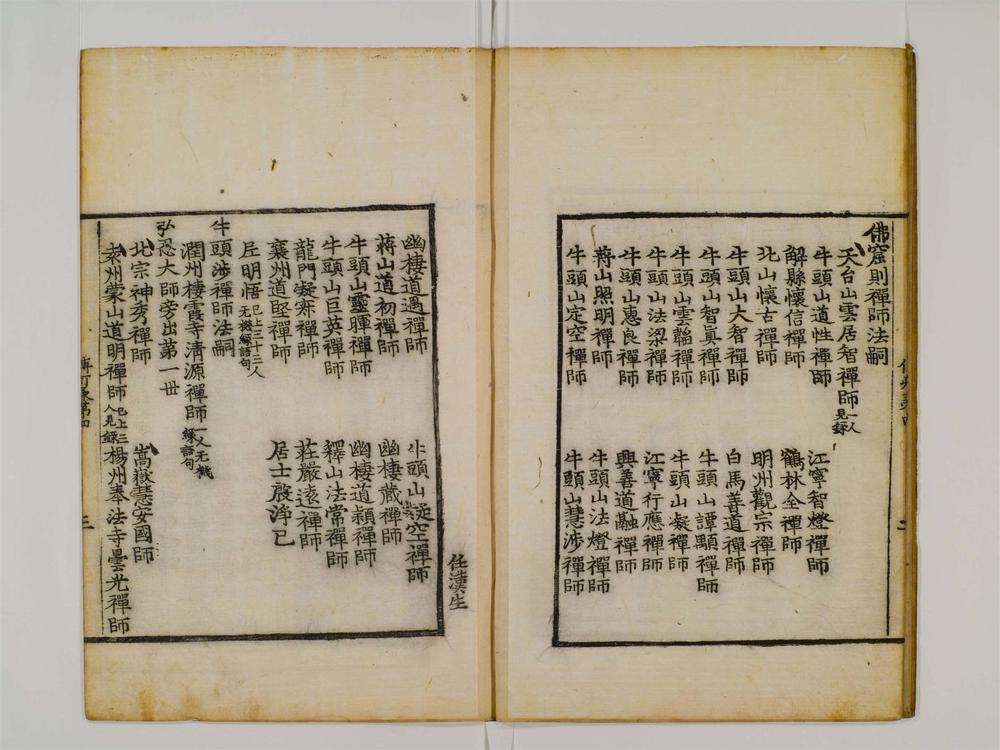 佛窟則禪師法嗣
天台山雲居智禪師一人見録
牛頭山道性禪師 江寧智燈禪師
解縣懷信禪師 鶴林全禪師
北山懷古禪師 明州觀宗禪師
牛頭山大智禪師 白馬善道禪師
牛頭山智眞禪師 牛頭山譚顒禪師
牛頭山雲韜禪師 牛頭山凝禪師
牛頭山法梁禪師 江寧行應禪師
牛頭山惠良禪師 興善道融禪師
蔣山照明禪師 牛頭山法燈禪師
牛頭山定空禪師 牛頭山慧涉禪師
任漢生
幽棲道遇禪師 牛頭山凝空禪師
蔣山道初禪師 幽棲藏禪師
牛頭山靈暉禪師 幽棲道穎禪師
牛頭山巨英禪師 釋山法常禪師
龍門凝寂禪師 莊嚴遠禪師
襄州道堅禪師 居士殷淨已
尼明悟已上三十三人无機縁語句
牛頭涉禪師法嗣
潤州棲霞寺清源禪師一人无機縁語句
弘忍大師旁出第一世
北宗神秀禪師 嵩嶽慧安國師
袁州蒙山道明禪師已上三人見録 楊州奉法寺曇光禪師
三